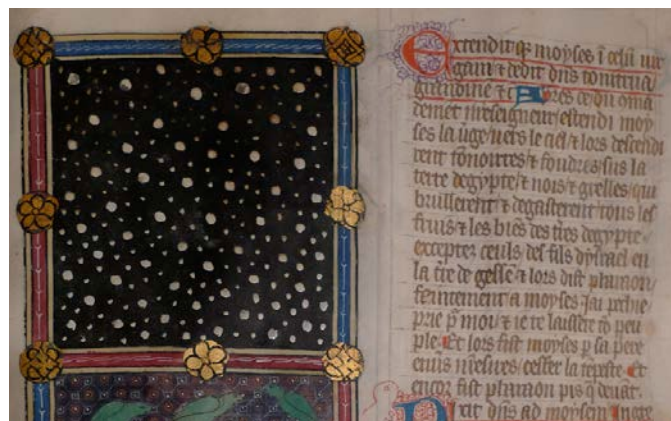 Extendit q3 moyses ī celū uir
gam & dedit dn̄s tonitrua
grandine & Apres ce dū oma
demēt nr̄eseigneur estendi moy
ses la uge uers le ciel & lors descendi
rent tonoirres & foudres sus la
terre degypte & nois & grelles qui
bruillerent & degasterent tous les
fruis & les biēs des t̄res degypte
exceptez ceuls des fils disrael en
la t̄re de gesse & lors dist pharaon
feintement a moyses jai pechie
prie p̄ moi & ie te laisserē tō peu
ple Et lors fist moyses p sa p̄ere
enuis nr̄eseigneur cesser la tēpeste Et
encor fist pharaon pis q̄ deuāt
Dixit dn̄s ad moysem Ingre